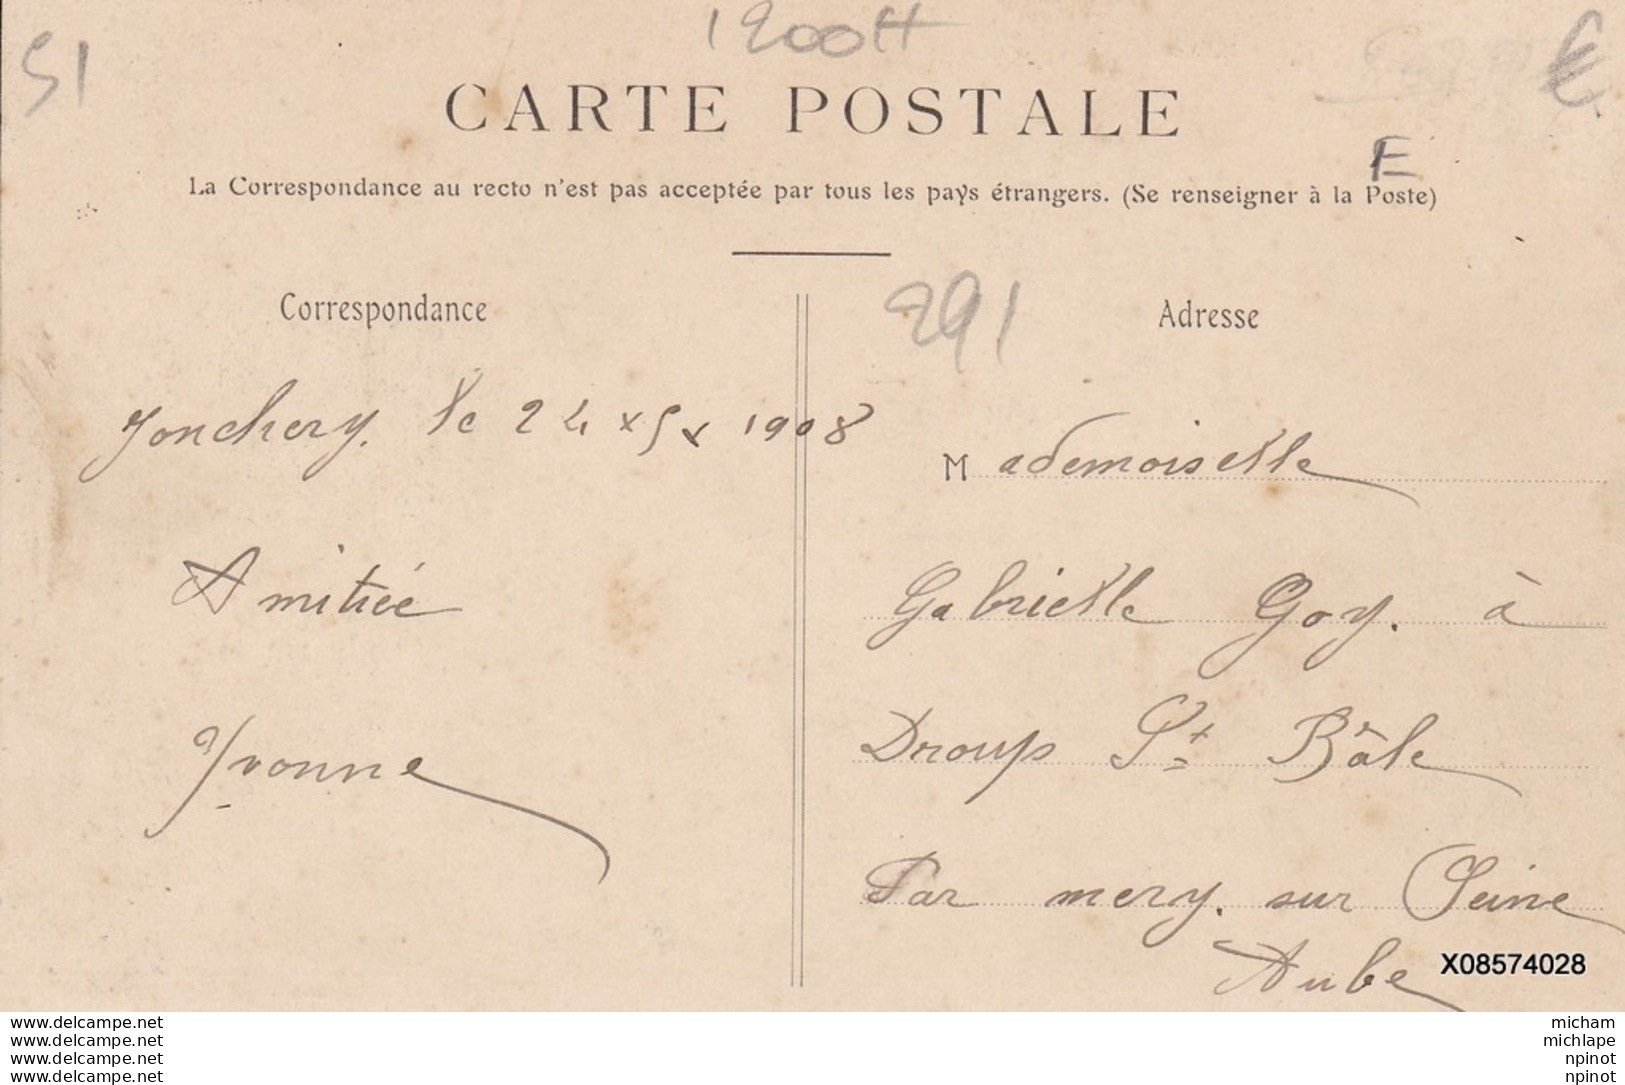 51
1200 H
€
CARTE POSTALE
E
La Correspondance au recto n'est pas acceptée par tous les pays étrangers. (Se renseigner à la Poste)
291
Correspondance
Jonchery. le 24 x 5 x 1908
Amitiée
Yvonne
Adresse
Mademoiselle
Gabrielle Goy. à
Droup St Bâle
Par mery. sur Seine
Aube
X08574028
www.delcampe.net
www.delcampe.net
www.delcampe.net
www.delcampe.net
micham
michlape
npinot
npinot